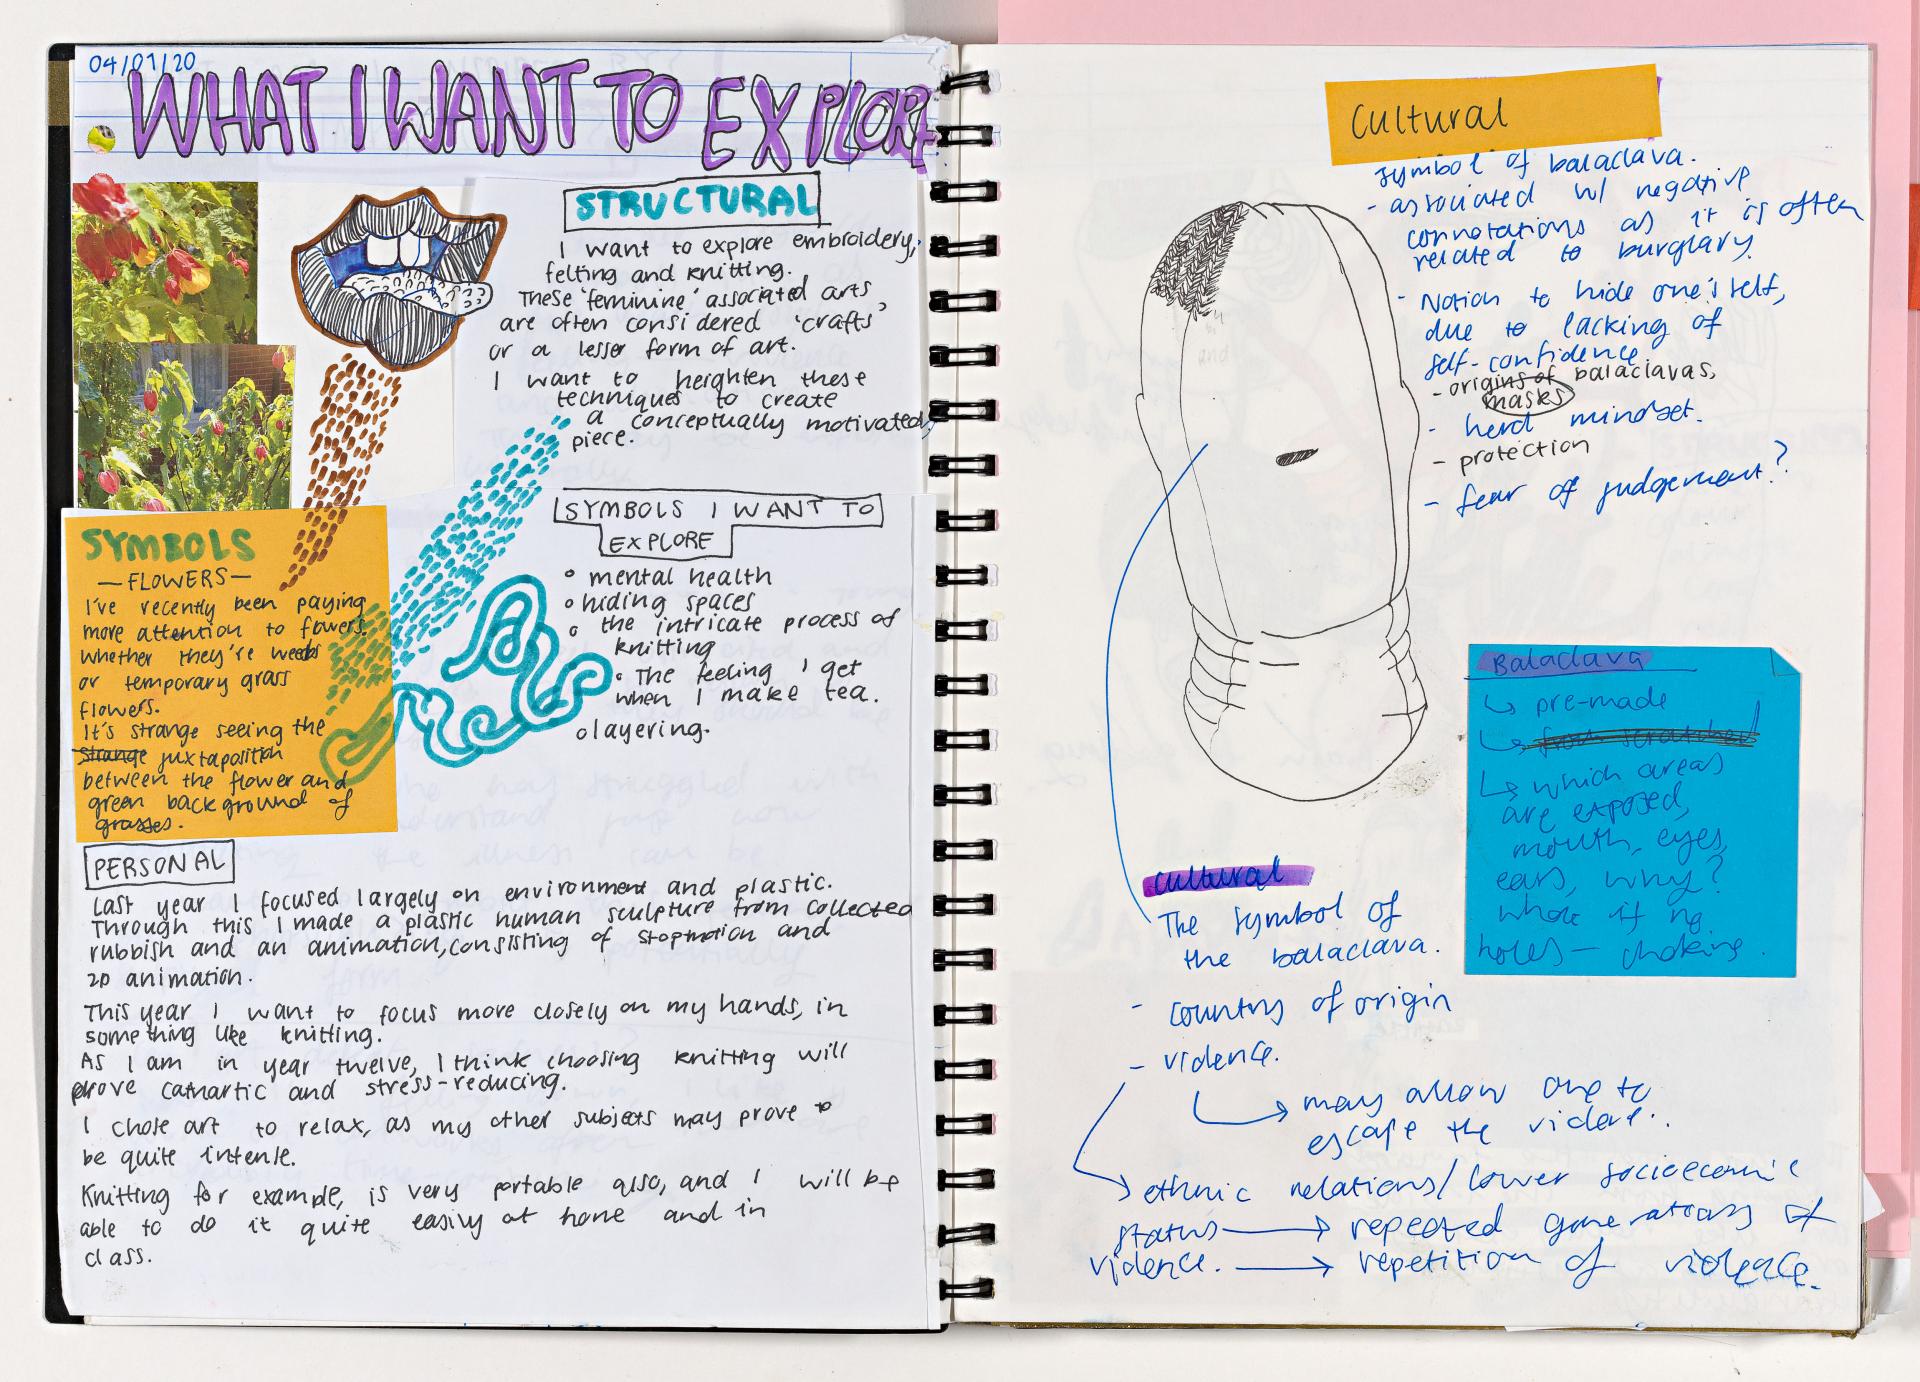 04/01/20
WHAT I WANT TO EXPLORE
STRUCTURAL
I want to explore embroidery,
felting and knitting.
These 'feminine' associated arts
are often considered 'crafts'
or a lesser form of art.
I want to heighten these
techniques to create
a conceptually motivated
piece.
SYMBOLS I WANT TO
EXPLORE
° mental health
° hiding spaces
° the intricate process of
knitting
° The feeling I get
when I make tea.
° layering.
SYMBOLS
—FLOWERS—
I've recently been paying
more attention to flowers.
whether they're weeds
or temporary grass
flowers.
It's strange seeing the
strange juxtaposition
between the flower and
green background of
grasses.
PERSONAL
Last year I focused largely on environment and plastic.
Through this I made a plastic human sculpture from collected
rubbish and an animation, consisting of stopmotion and
2D animation.
This year I want to focus more closely on my hands, in
something like knitting.
As I am in year twelve, I think choosing knitting will
prove cathartic and stress-reducing.
I chose art to relax, as my other subjects may prove to
be quite intense.
Knitting for example, is very portable also, and I will be
able to do it quite easily at home and in
class.
Cultural
symbol of balaclava.
- associated w/ negative
connotations as it is often
related to burglary.
- Notion to hide one's self,
due to lacking of
self-confidence
- origins of balaclavas,
masks
- herd mindset.
- protection
- fear of judgement?
Balaclava
↳ pre-made
↳ from scratched
↳ which areas
are exposed,
mouth, eyes,
ears, why?
whole if no
holes — choking
Cultural
The symbol of
the balaclava.
- country of origin
- violence.
↳ may allow one to
escape the violence.
→ ethnic relations/lower socioeconomic
status → repeated generations of
violence. → repetition of violence.